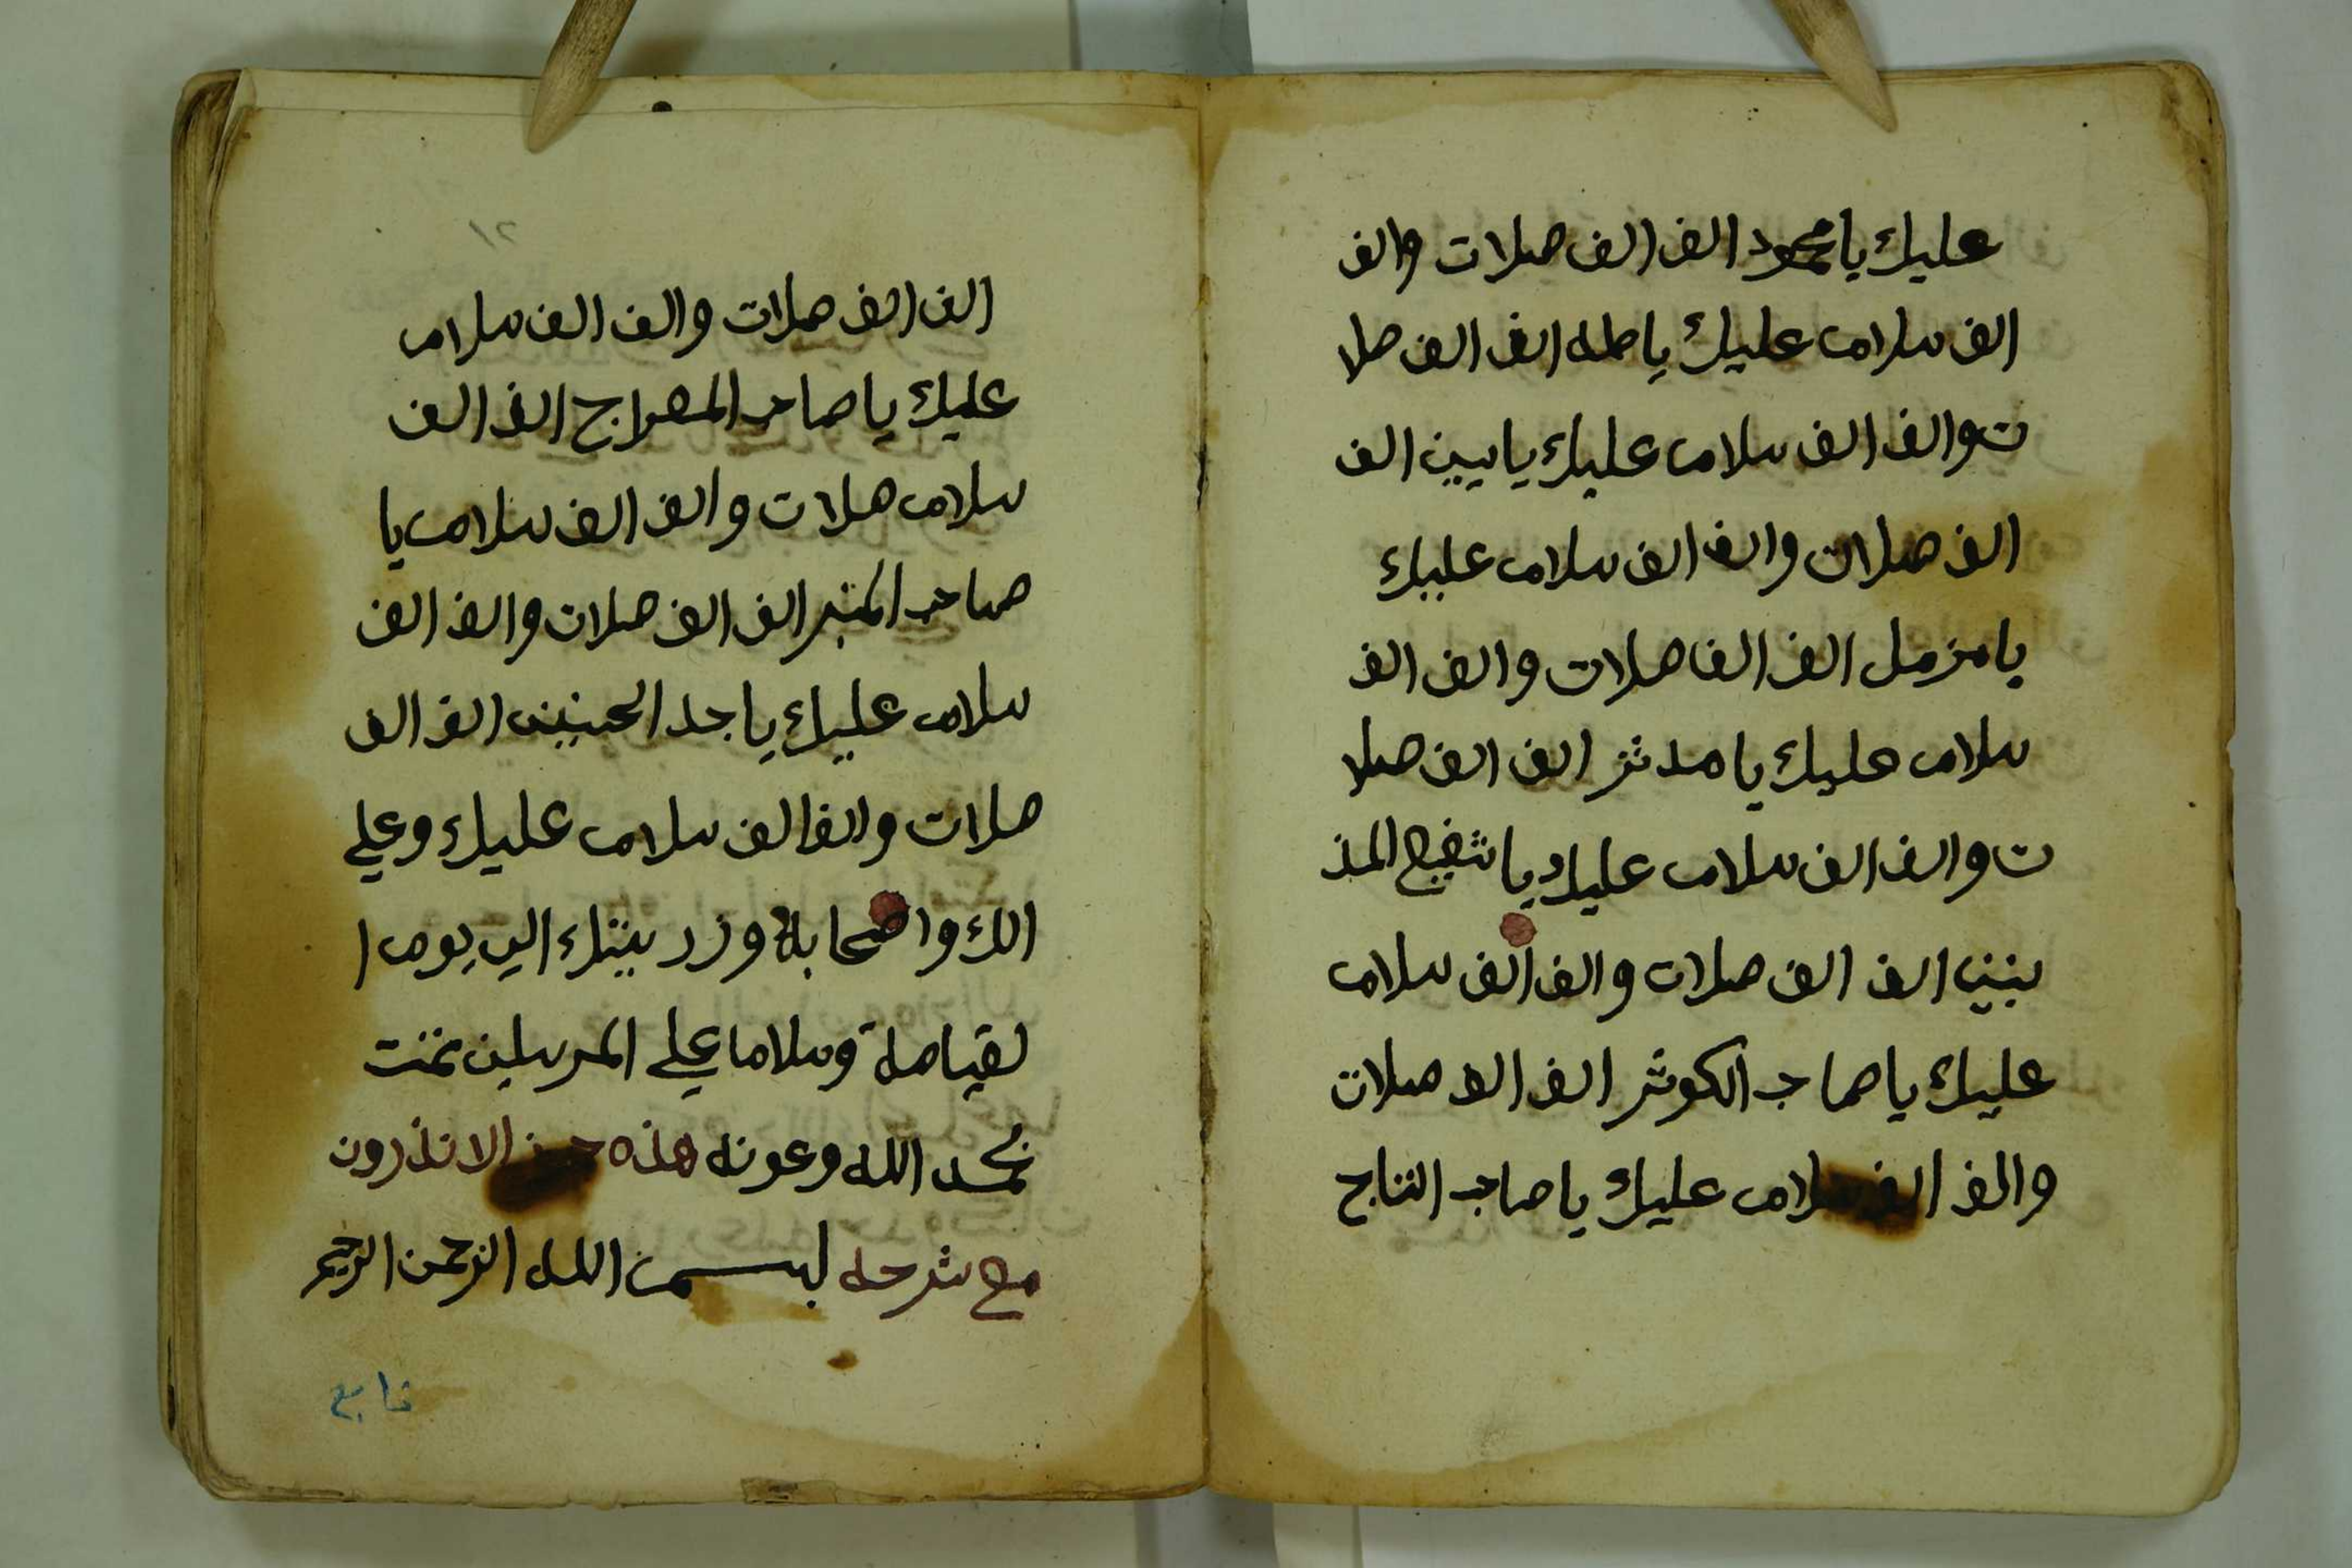 عليك يا محمود الف الف صلات والف
الف سلام عليك ياطه الف الف صلا
ت والف الف سلام عليك يايسين الف
الف صلات والف الف سلام عليك
يا مزمل الف الف صلات والف الف
سلام عليك يا مدثر الف الف صلا
ت والف الف سلام عليك يا شفيع المذ
نبين الف الف صلات والف الف سلام
عليك يا صاحب الكوثر الف الف صلات
والف الف سلام عليك يا صاحب التاج
٢١
الف الف صلات والف الف سلام
عليك يا صاحب المعراج الف الف
سلام صلات والف الف سلام يا
صاحب المنبر الف الف صلات والف الف
سلام عليك يا جد الحسنين الف الف
صلات والف الف سلام عليك وعلي
الك واصحابه وزريتك الي يوم ا
لقيامة وسلاما علي المرسلين تمت
بحمد الله وعونه هذه الاندرون
مع شرحه بسم الله الرحمن الرحيم
تابع